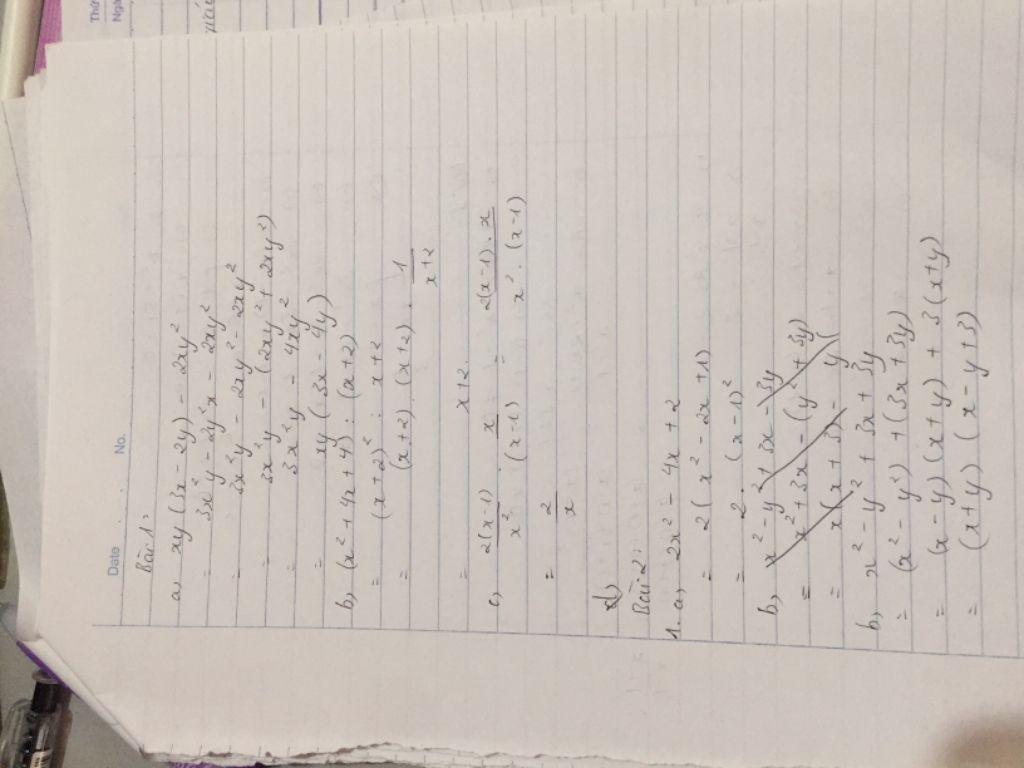 Thứ
Ngà
Date No.
Bài 1:
a, xy(3x - 2y) - 2xy²
= 3x²y - 2y²x - 2xy²
= 3x²y - 2xy² - 2xy²
= 3x²y - (2xy² + 2xy²)
= 3x²y - 4xy²
= xy(3x - 4y)
b, (x² + 4x + 4) : (x + 2)
= (x + 2)² : x + 2
= (x + 2) . (x + 2) . 1/x + 2
= x + 2.
c, 2(x-1)/x² . x/(x-1) = 2(x-1) . x/x² . (x-1)
= 2/x
d)
Bài 2:
1. a, 2x² - 4x + 2
= 2(x² - 2x + 1)
= 2 (x - 1)²
b, x² - y² + 3x - 3y
= x² + 3x - (y² + 3y)
= x(x + 3) - y(
b, x² - y² + 3x + 3y
= (x² - y²) + (3x + 3y)
= (x - y)(x + y) + 3(x + y)
= (x + y)(x - y + 3)